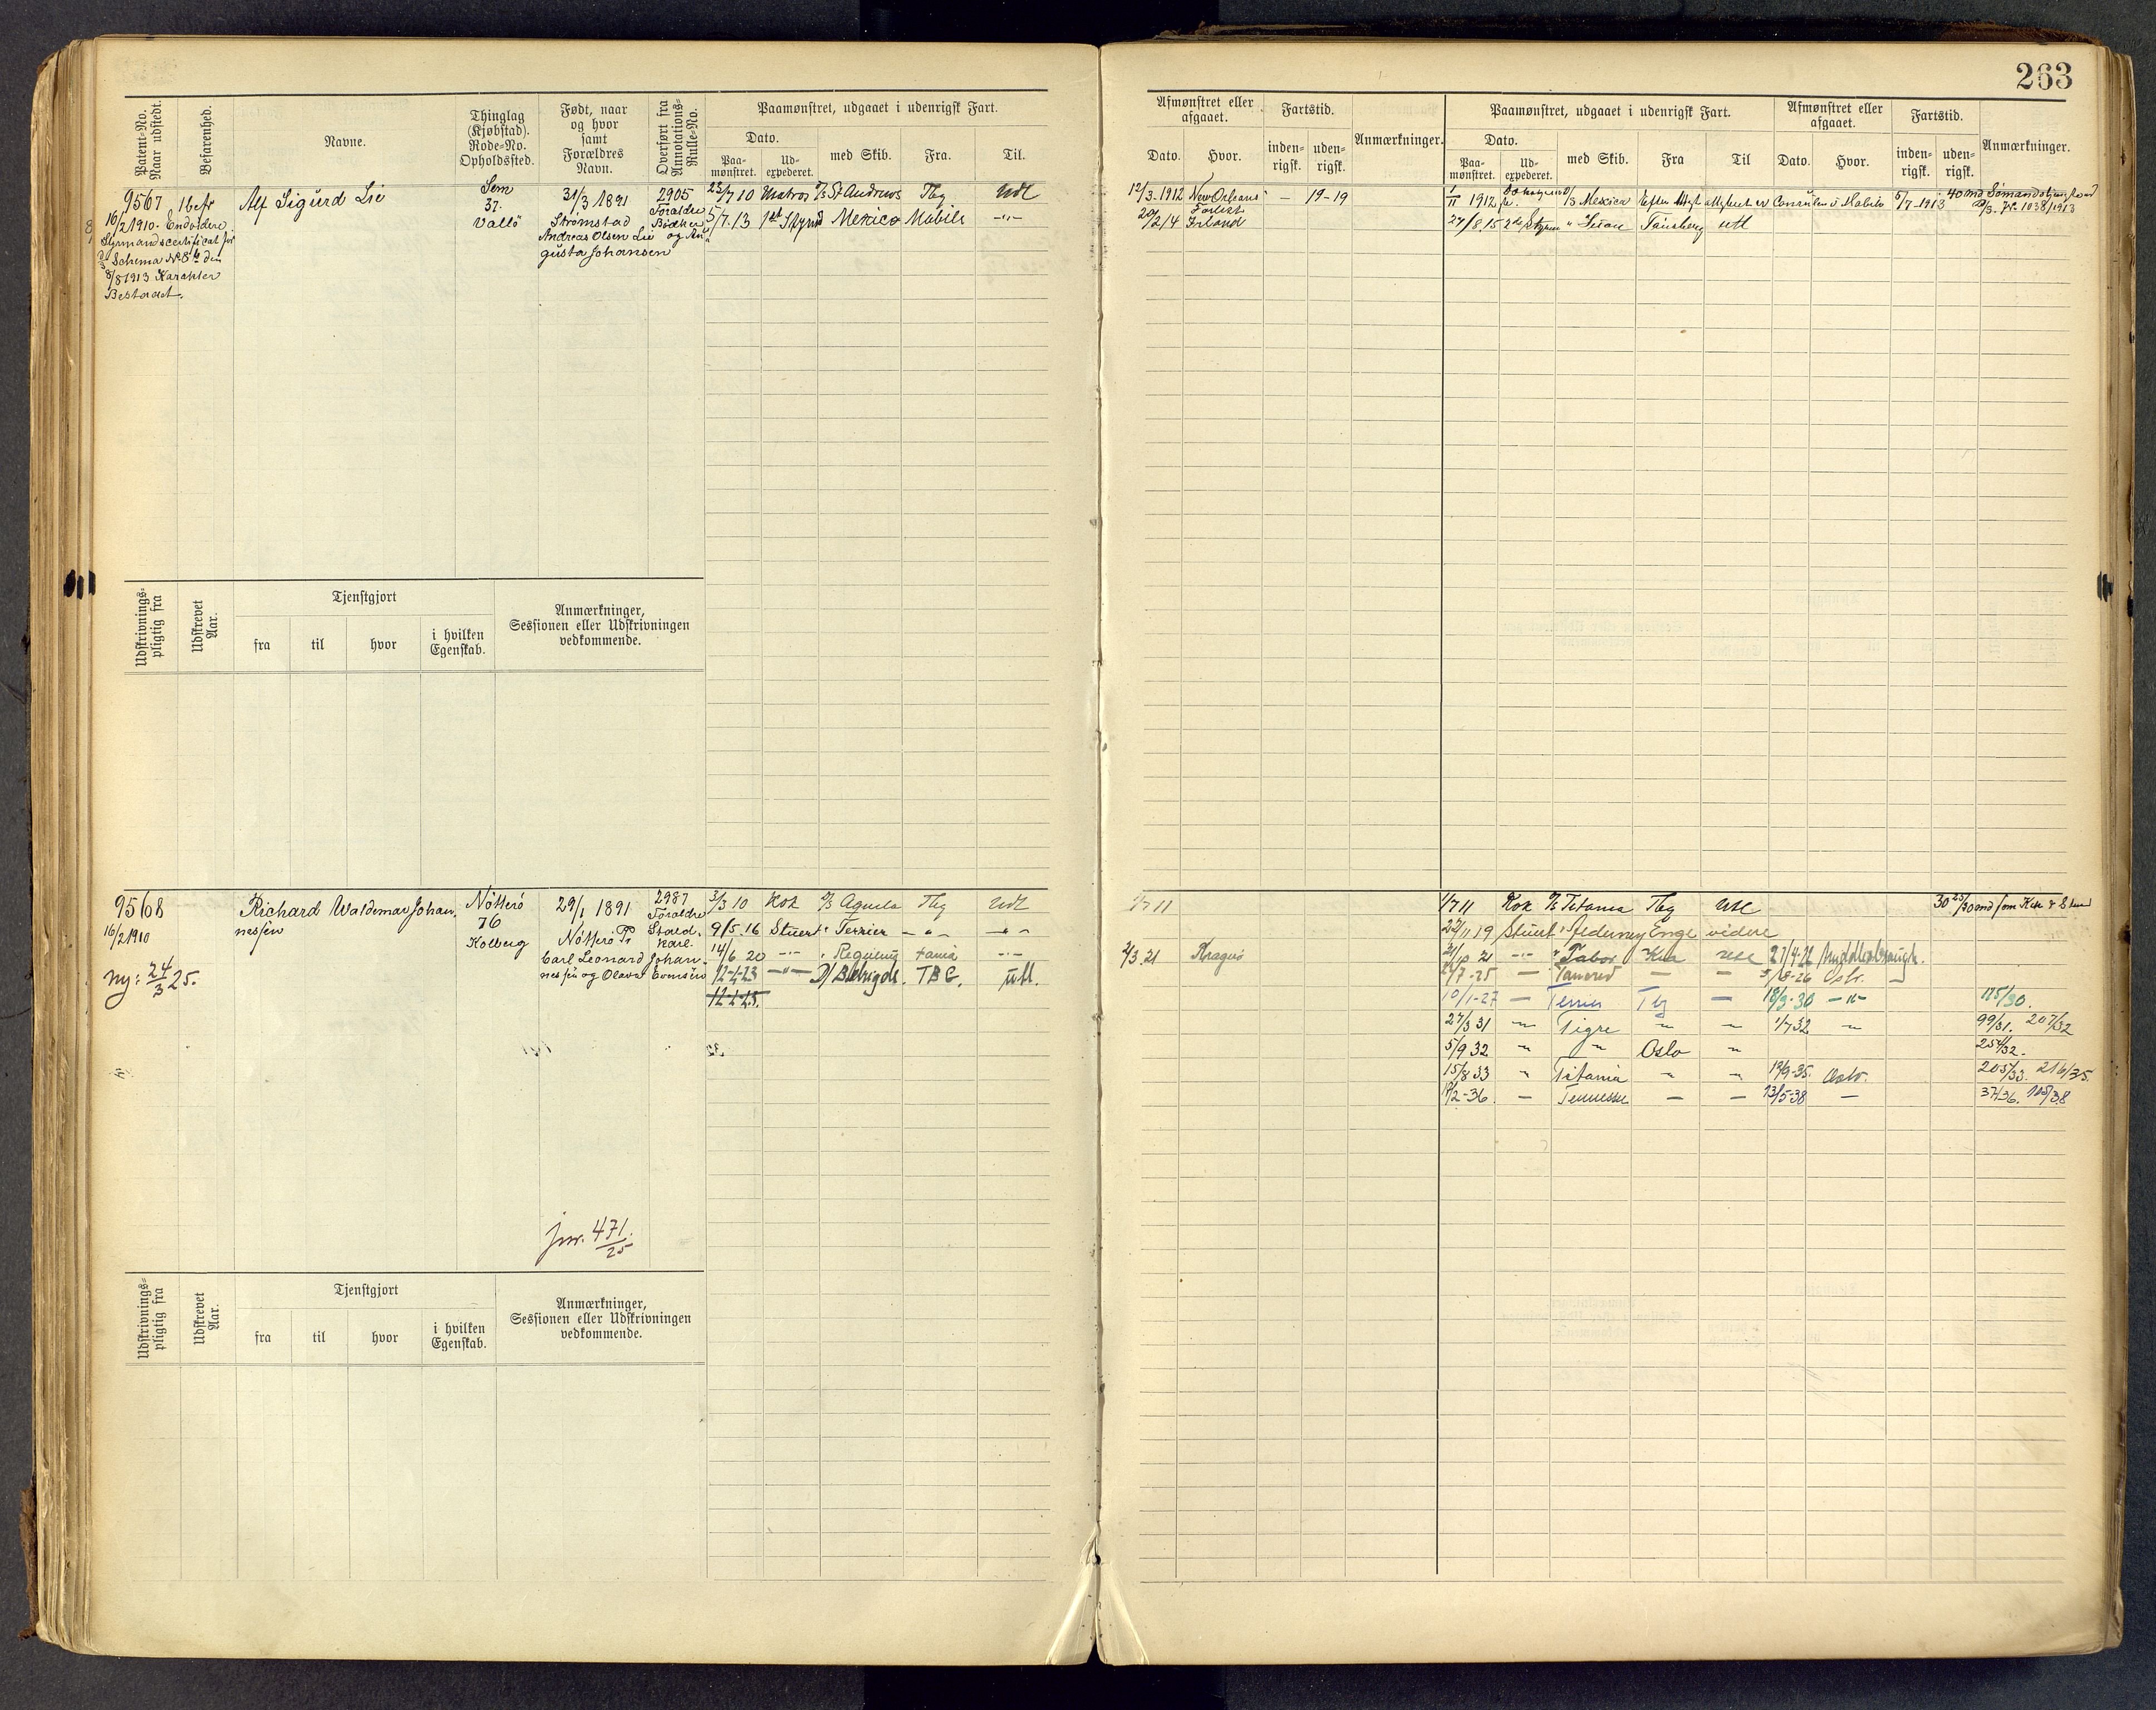 263
Patent-No. Naar udstedt.
Befarenhed.
Navne.
Thinglag (Kjøbstad). Rode-No. Opholdssted.
Født, naar og hvor samt Forældres Navn.
Overført fra Annotations-Rulle-No.
Paamønstret, udgaaet i udenrigsk Fart.
Dato.
Paa-mønstret.
Ud-expederet.
med Skib.
Fra.
Til.
Afmønstret eller afgaaet.
Dato.
Hvor.
Fartstid.
inden-rigsk.
uden-rigsk.
Anmærkninger.
Paamønstret, udgaaet i udenrigsk Fart.
Dato.
Paa-mønstret.
Ud-expederet.
med Skib.
Fra
Til
Afmønstret eller afgaaet.
Dato.
Hvor.
Fartstid.
inden-rigsk.
uden-rigsk.
Anmærkninger.
9567
16/2 1910. Godkjendt
Styrmandscertificat for
Schema No 8
8/8 1913 Karakter
Bestaaet.
Alf Sigurd Lie
Sem
37.
Vallö
31/3 1891
Strömstad
Andreas Olsen Lie og Au
gusta Johansen
2905
Foreldre
Bødker
23/7 10 Matros St Andrews Tbg Udl
5/7.13 1st Styrmd Mexico Mobile -"-
12/3-1912 New Orleans - 19-19
20/2 14 Forlist Irland
1/11 1912 Mexico Efter attest Consulen i Mobile 5/7-1913 J.No. 1038/1913
27/8.15 2den Styrm Tünsberg utl
Udskrivnings-pligtig fra
Udskrevet Aar.
Tjenstgjort
fra
til
hvor
i hvilken Egenskab.
Anmærkninger, Sessionen eller Udskrivningen vedkommende.
9568
16/2 1910
ny: 24/3 25.
Richard Waldemar Johan
nessen
Nötterö
76
Kolberg
29/1 1891
Nötterö
Carl Leonard Johan-
nessen og Olava Evensen
2987
Foreldre
Stald-
karl
3/3 10 Kok Aquila Tbg Udl
9/5.16 Stuert Terrier - " - - " -
14/6 20 -"- -"-
12-1-23 -"- TBG. utl.
12-1-23.
jnr. 471/25
1/7 11
2/3.21 Kragerö
1/7 11 Kok Titania Tbg Utl
22/11.19 Stuert
21/10 21 -"- Tabor Kra utl 27/4-22
/7-25 — Tancred — — 5/8-26 Oslo.
10/1-27 — Terrier Tbg — 18/3-30 -"- 175/30.
27/3 31 " Tigre " " 1/7 32 " 99/31. 207/32
5/9 32 " " Oslo " 254/32.
15/8 33 " Titania " " 19/9-35. Oslo. 205/33. 216/35.
/2-36. — Tennessee — — 13/5-38 — 37/36. 105/38
Udskrivnings-pligtig fra
Udskrevet Aar.
Tjenstgjort
fra
til
hvor
i hvilken Egenskab.
Anmærkninger, Sessionen eller Udskrivningen vedkommende.